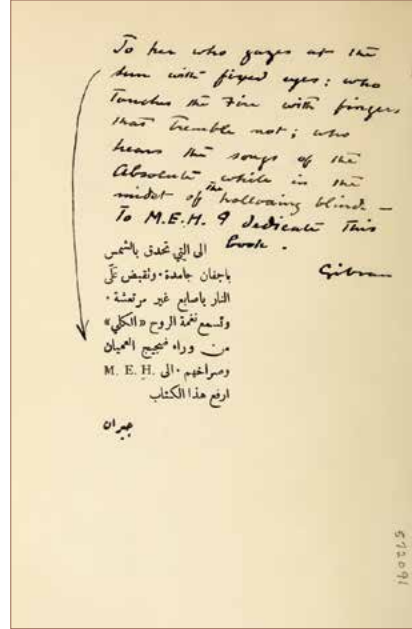 To her who gazes at the
sun with fixed eyes; who
Touches the Fire with fingers
that tremble not; who
hears the songs of the
Absolute while in the
midst of the hollowing blind —
To M.E.H. I dedicate This
book.
Gibran
الى التي تحدق بالشمس
باجفان جامدة ٠ وتقبض على
النار باصابع غير مرتعشة ٠
وتسمع نغمة الروح «الكلي»
من وراء ضجيج العميان
وصراخهم ٠ الى M. E. H.
ارفع هذا الكتاب
جبران
572091